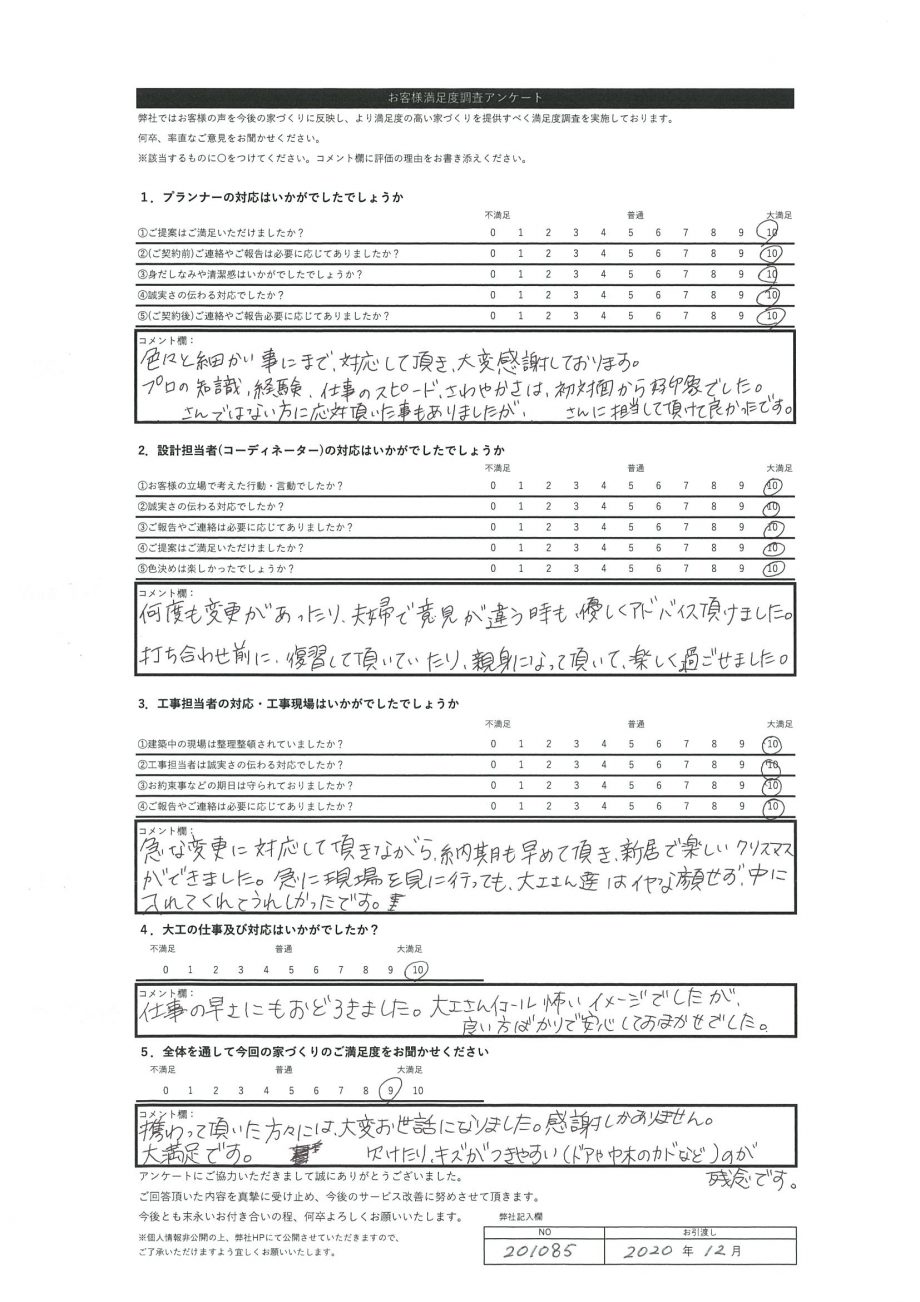 お客様満足度調査アンケート
弊社ではお客様の声を今後の家づくりに反映し、より満足度の高い家づくりを提供すべく満足度調査を実施しております。
何卒、率直なご意見をお聞かせください。
※該当するものに〇をつけてください。コメント欄に評価の理由をお書き添えください。
1．プランナーの対応はいかがでしたでしょうか
不満足 普通 大満足
①ご提案はご満足いただけましたか？ 0 1 2 3 4 5 6 7 8 9 10
②(ご契約前)ご連絡やご報告は必要に応じてありましたか？ 0 1 2 3 4 5 6 7 8 9 10
③身だしなみや清潔感はいかがでしたでしょうか？ 0 1 2 3 4 5 6 7 8 9 10
④誠実さの伝わる対応でしたか？ 0 1 2 3 4 5 6 7 8 9 10
⑤(ご契約後)ご連絡やご報告必要に応じてありましたか？ 0 1 2 3 4 5 6 7 8 9 10
コメント欄：
色々と細かい事にまで、対応して頂き、大変感謝しております。
プロの知識、経験、仕事のスピード、さわやかさは、初対面から好印象でした。
さんではない方に応対頂いた事もありましたが、 さんに担当して頂けて良かったです。
2．設計担当者(コーディネーター)の対応はいかがでしたでしょうか
不満足 普通 大満足
①お客様の立場で考えた行動・言動でしたか？ 0 1 2 3 4 5 6 7 8 9 10
②誠実さの伝わる対応でしたか？ 0 1 2 3 4 5 6 7 8 9 10
③ご報告やご連絡は必要に応じてありましたか？ 0 1 2 3 4 5 6 7 8 9 10
④ご提案はご満足いただけましたか？ 0 1 2 3 4 5 6 7 8 9 10
⑤色決めは楽しかったでしょうか？ 0 1 2 3 4 5 6 7 8 9 10
コメント欄：
何度も変更があったり、夫婦で意見が違う時も、優しくアドバイス頂けました。
打ち合わせ前に、復習して頂いていたり、親身になって頂いて、楽しく過ごせました。
3．工事担当者の対応・工事現場はいかがでしたでしょうか
不満足 普通 大満足
①建築中の現場は整理整頓されていましたか？ 0 1 2 3 4 5 6 7 8 9 10
②工事担当者は誠実さの伝わる対応でしたか？ 0 1 2 3 4 5 6 7 8 9 10
③お約束事などの期日は守られておりましたか？ 0 1 2 3 4 5 6 7 8 9 10
④ご報告やご連絡は必要に応じてありましたか？ 0 1 2 3 4 5 6 7 8 9 10
コメント欄：
急な変更に対応して頂きながら、納期も早めて頂き、新居で楽しいクリスマス
ができました。急に現場を見に行っても、大工さん達はイヤな顔せず、中に
入れてくれてうれしかったです。
4．大工の仕事及び対応はいかがでしたか？
不満足 普通 大満足
0 1 2 3 4 5 6 7 8 9 10
コメント欄：
仕事の早さにもおどろきました。大工さんイコール怖いイメージでしたが、
良い方ばかりで安心しておまかせでした。
5．全体を通して今回の家づくりのご満足度をお聞かせください
不満足 普通 大満足
0 1 2 3 4 5 6 7 8 9 10
コメント欄：
携わって頂いた方々には、大変お世話になりました。感謝しかありません。
大満足です。 欠けたり、キズがつきやすい（ドアや巾木のカドなど）のが
残念です。
アンケートにご協力いただきまして誠にありがとうございました。
ご回答頂いた内容を真摯に受け止め、今後のサービス改善に努めさせて頂きます。
今後とも末永いお付き合いの程、何卒よろしくお願いいたします。
弊社記入欄
※個人情報非公開の上、弊社HPにて公開させていただきますので、
ご了承いただけますよう宜しくお願いいたします。
NO お引渡し
201085 2020 年 12 月